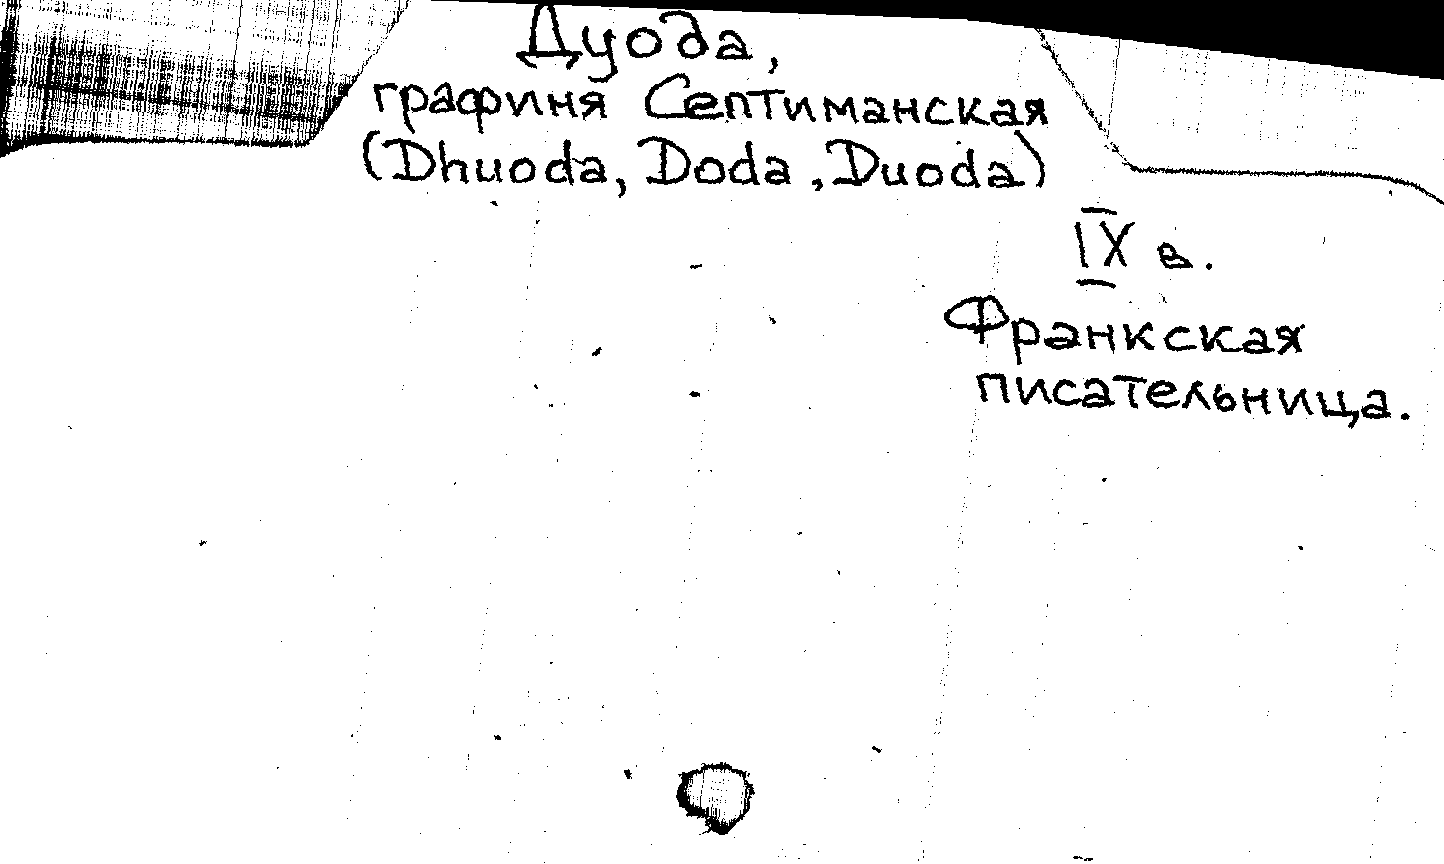 Дуода,
графиня Септиманская
(Dhuoda, Doda, Duoda)
IX в.
Франкская
писательница.